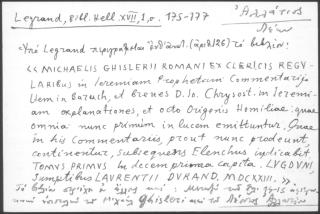 Legrand, Bibl. Hell. XVII, 1, σ. 175-177
Ἀλλάτιος
Λέων
Ὑπὸ Legrand περιγράφεται (ἀριθ 126) τὸ βιβλίον:
« MICHAELIS GHISLERII ROMANI EX CLERICIS REGU-
LARibus in Ieremiam Prophetam Commentarij.
Item in Baruch, et Breves D. Io. Chrysost. in Ieremi-
am explanationes, et octo Origenis Homiliae: quae
omnia nunc primùm in lucem emittuntur. Quae
in his Commentariis, prout nunc prodeunt
continentur, Subsequens Elenchus indicabit
TOMUS PRIMUS in decem prima capita. LVGDVNI,
Sumptibus LAURENTII DURAND, MDCXXIII. ».
Τὸ βιβλίο
Μιχαὴλ Ghislerii καὶ τὸ Λέων